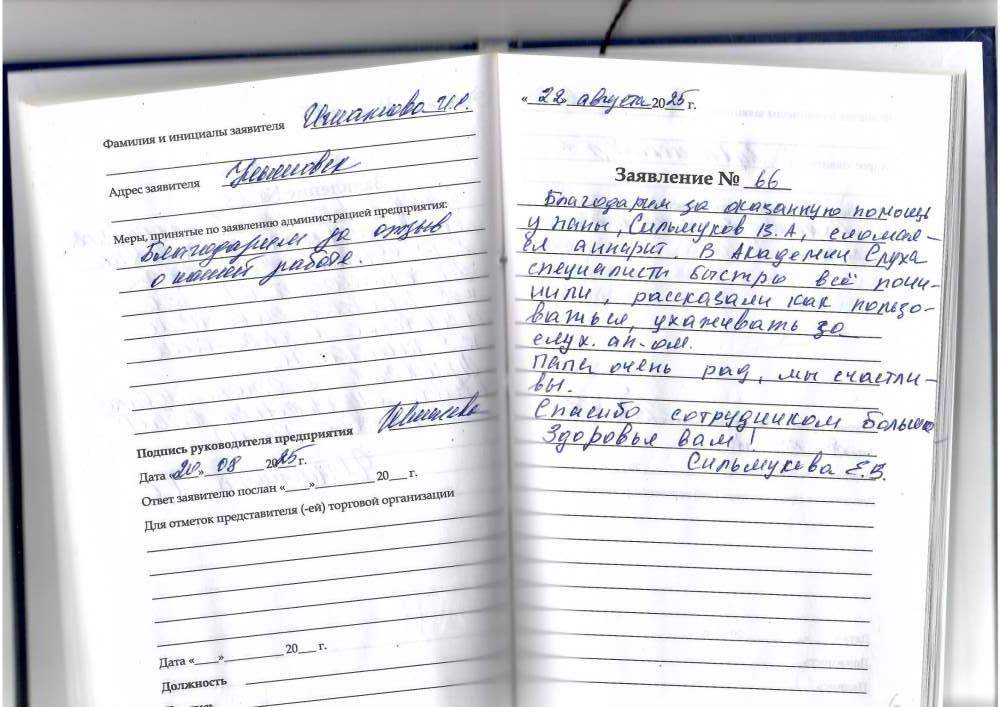 Фамилия и инициалы заявителя
Адрес заявителя Ульяновск
Меры, принятые по заявлению администрацией предприятия:
Благодарим за отзыв
о нашей работе.
Подпись руководителя предприятия
Дата «20» 08 2025 г.
Ответ заявителю послан «___»__________ 20___ г.
Для отметок представителя (-ей) торговой организации
Дата «____»__________ 20___ г.
Должность
« 22 августа 2025 г.
Заявление № 66
Благодарим за оказанную помощь
у папы, Сильмуков В. А, сломал-
ся аппарат. В Академии Слуха
специалисты быстро всё почи-
нили, рассказали как пользо-
ваться, ухаживать за
слух. ап-ом.
Папа очень рад, мы счастли-
вы.
Спасибо сотрудником большое
Здоровья вам!
Сильмукова Е.В.